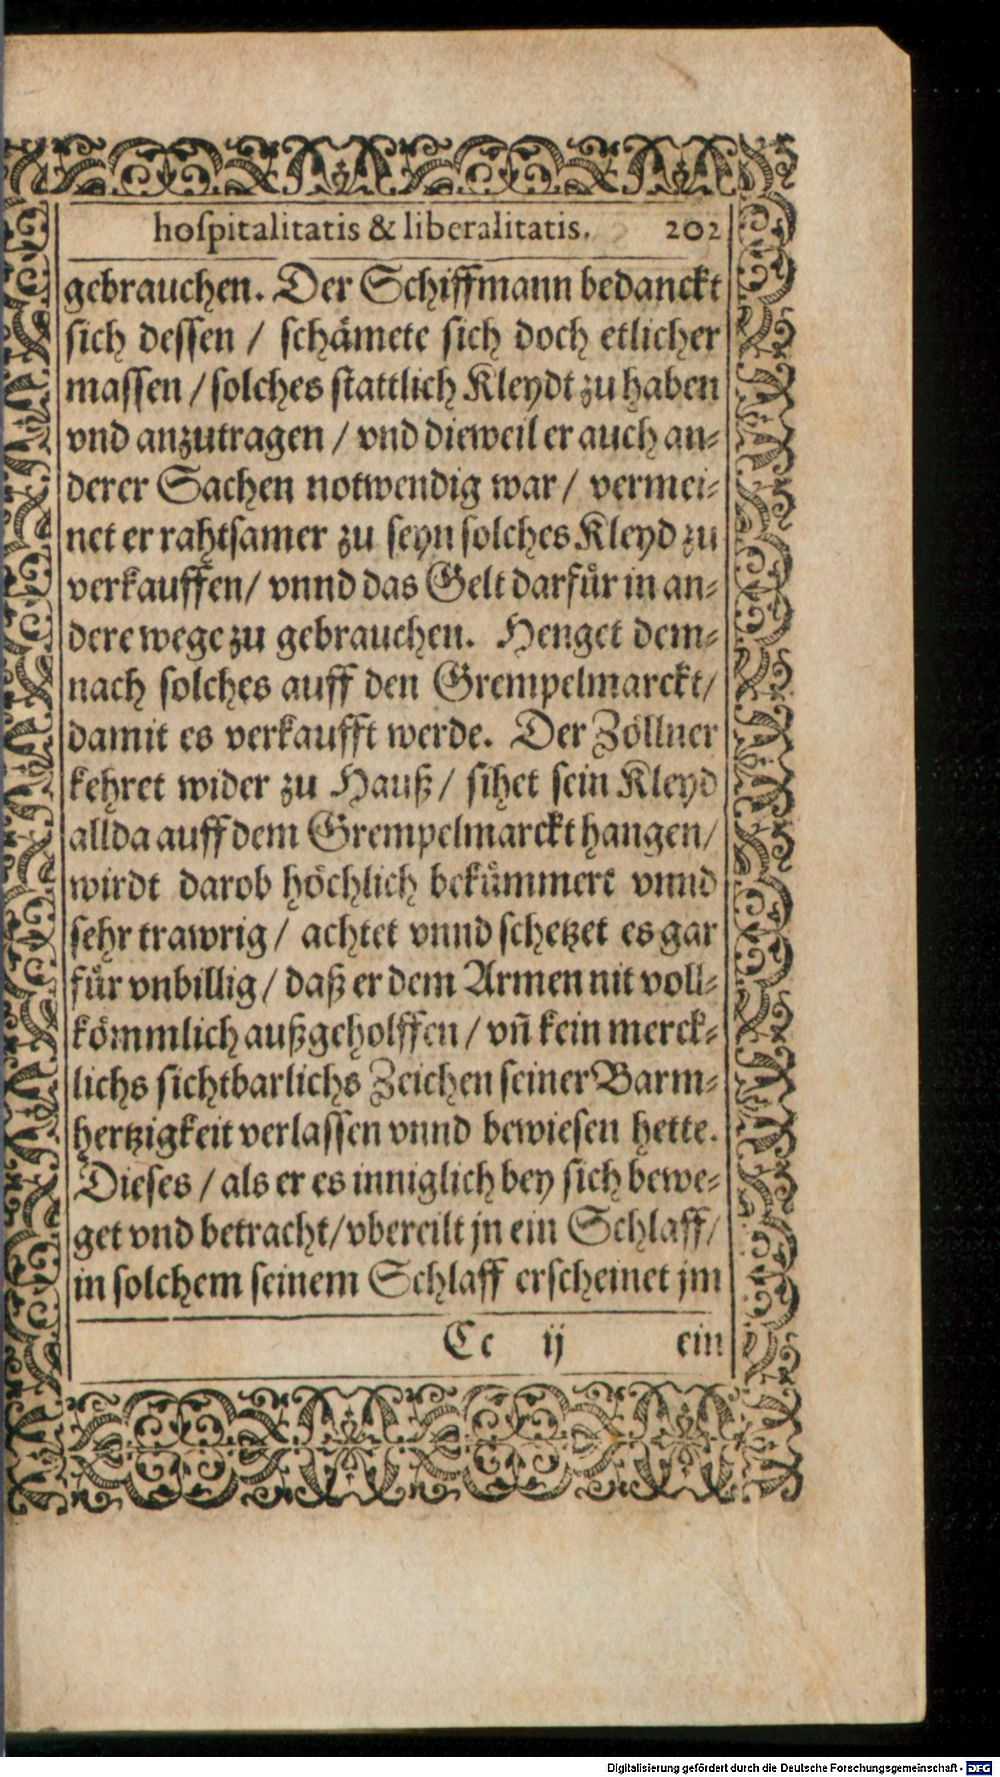 hospitalitatis & liberalitatis. 202
gebrauchen. Der Schiffmann bedanckt
sich dessen / schämete sich doch etlicher
massen / solches stattlich Kleydt zu haben
vnd anzutragen / vnd dieweil er auch an-
derer Sachen notwendig war / vermei-
net er rahtsamer zu seyn solches Kleyd zu
verkauffen / vnnd das Gelt darfür in an-
dere wege zu gebrauchen. Henget dem-
nach solches auff den Grempelmarckt /
damit es verkaufft werde. Der Zöllner
kehret wider zu Hauß / sihet sein Kleyd
allda auff dem Grempelmarckt hangen /
wirdt darob höchlich bekümmert vnnd
sehr trawrig / achtet vnnd schetzet es gar
für vnbillig / daß er dem Armen nit voll-
kömmlich außgeholffen / vñ kein merck-
lichs sichtbarlichs Zeichen seiner Barm-
hertzigkeit verlassen vnnd bewiesen hette.
Dieses / als er es inniglich bey sich bewe-
get vnd betracht / vbereilt jn ein Schlaff /
in solchem seinem Schlaff erscheinet jm
Cc ij ein
Digitalisierung gefördert durch die Deutsche Forschungsgemeinschaft - DFG